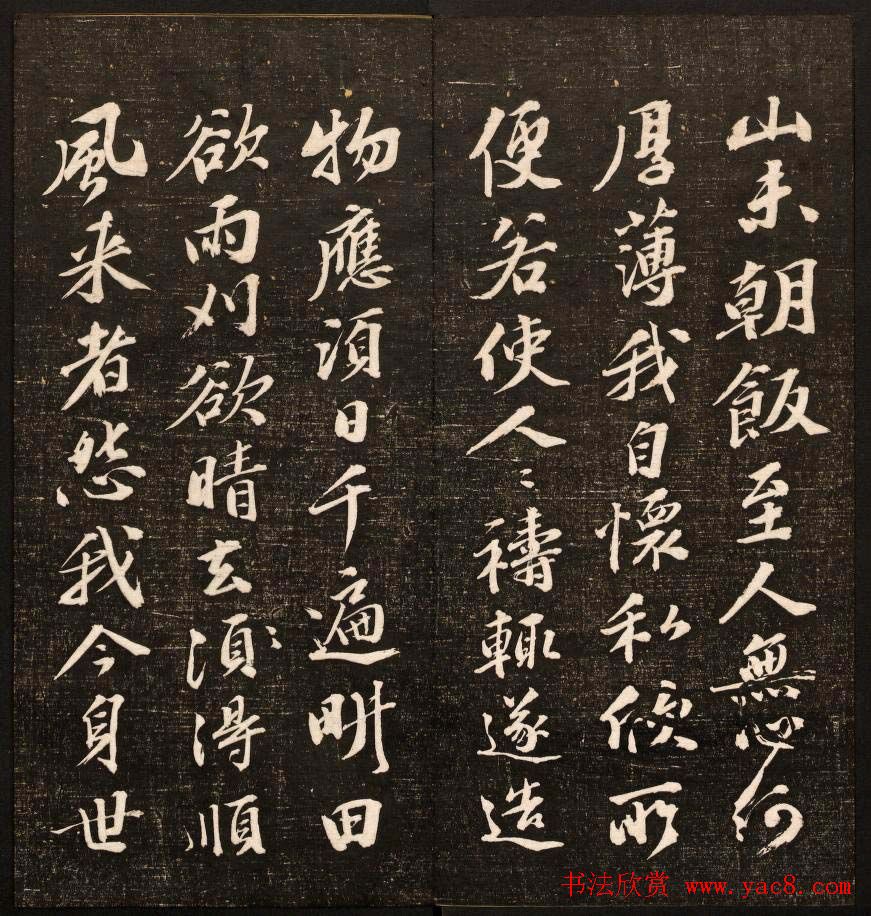 山未朝飯至人無心何
厚薄我自懷私所
便若使人〻禱輒遂造
物應須日千遍畊田
欲雨刈欲晴去須得順
風来者怨我今身世
书法欣赏 www.yac8.com